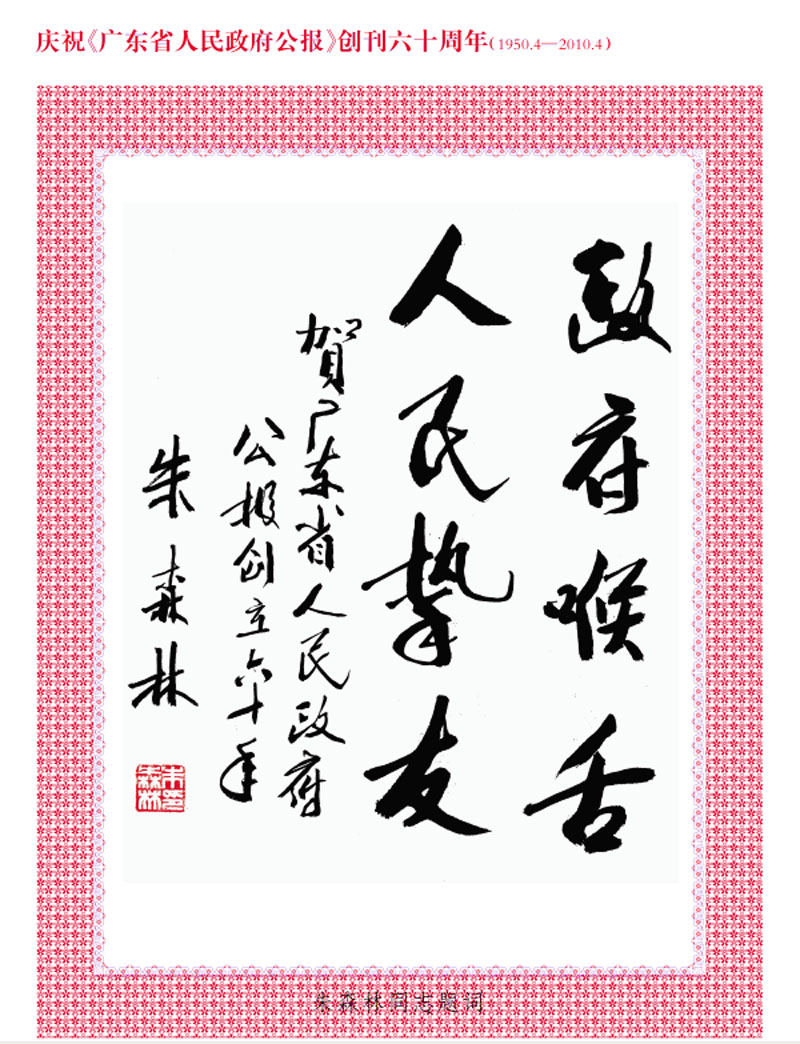 庆祝《广东省人民政府公报》创刊六十周年(1950.4—2010.4)
政府喉舌
人民挚友
贺广东省人民政府
公报创立六十年
朱森林
朱森林印
朱森林同志题词